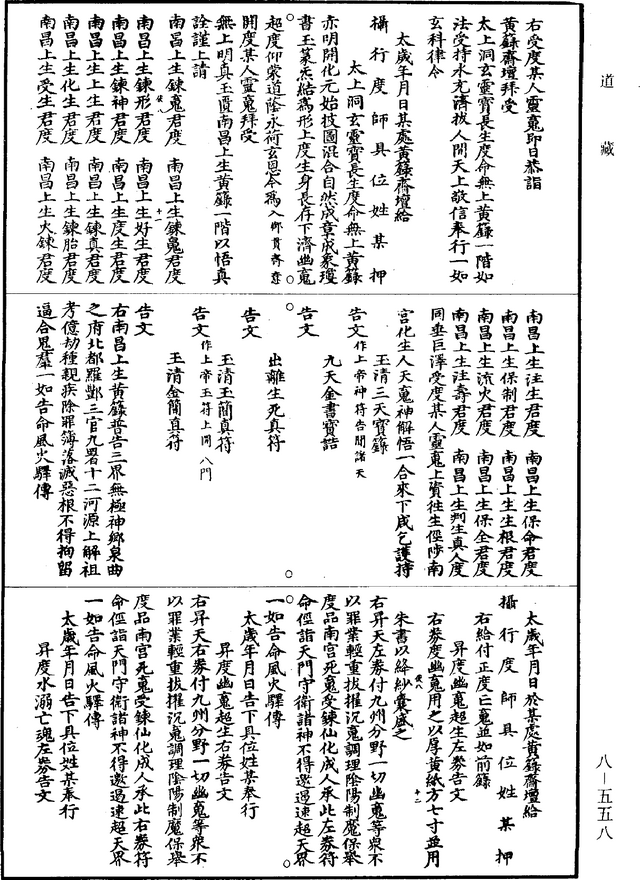 道藏
右受度某人靈䰟即日恭詣
黃籙齋壇拜受
太上洞玄靈寶長生度命無上黃籙一階如
法受持永充濟拔人間天上敬信奉行一如
玄科律令
太歲年月日某處黃籙齋壇給
攝行度師具位姓某押
太上洞玄靈寶長生度命無上黃籙
赤明開化元始披圖混合自然成章成象瓊
書玉篆炁結為形上度生身長存下濟幽䰟
超度仰荣道蔭永荷玄恩今為入鄉貫齋意
開度某人靈䰟拜受
無上明真玉匱南昌上生黃籙一階以悟真
詮謹上請
南昌上生鍊䰟君度 南昌上生鍊魄君度
南昌上生鍊形君度 南昌上生好生君度
南昌上生鍊神君度 南昌上生度生君度
南昌上生上生君度 南昌上生鍊真君度
南昌上生化生君度 南昌上生鍊胎君度
南昌上生受生君度 南昌上生火鍊君度
南昌上生注生君度 南昌上生保命君度
南昌上生保制君度 南昌上生生根君度
南昌上生流火君度 南昌上生保全君度
南昌上生注壽君度 南昌上生判生真人度
同垂巨澤受度某人靈䰟上資徃生徑陟南
宮化生人天䰟神解悟一合來下咸乞護持
玉清三天寶籙
告文作上帝神符告聞諸天
九天金書寶誥
告文
出離生死真符
告文
玉清玉簡真符
告文作上帝玉符上開八門
玉清金簡真符
告文
右南昌上生黃籙普告三界無極神鄉泉曲
之府北都羅酆三官九署十二河源上解祖
考億劫種親疾除罪簿落滅惡根不得拘留
逼合鬼羣一如告命風火驛傳
太歲年月日於某處黃籙齋壇給
攝行度師具位姓某押
右給付正度亡䰟並如前籙
昇度幽䰟超生左券告文
右券度幽䰟用之以厚黃紙方七寸並用
朱書以絳紗囊盛之
右昇天左券付九州分野一切幽䰟等衆不
以罪業輕重拔擢沉䰟調理陰陽制魔保舉
度品南宮死䰟受鍊仙化成人承此左券符
命徑詣天門守衛諸神不得邀遏速超天界
一如告命風火驛傳
太歲年月日告下具位姓某奉行
昇度幽䰟超生右券告文
右昇天右券付九州分野一切幽䰟等衆不
以罪業輕重拔擢沉䰟調理陰陽制魔保舉
度品南宮死䰟受鍊仙化成人承此右券符
命徑詣天門守衛諸神不得邀遏速超天界
一如告命風火驛傳
太歲年月日告下具位姓某奉行
昇度水溺亡魂左券告文
八—五五八